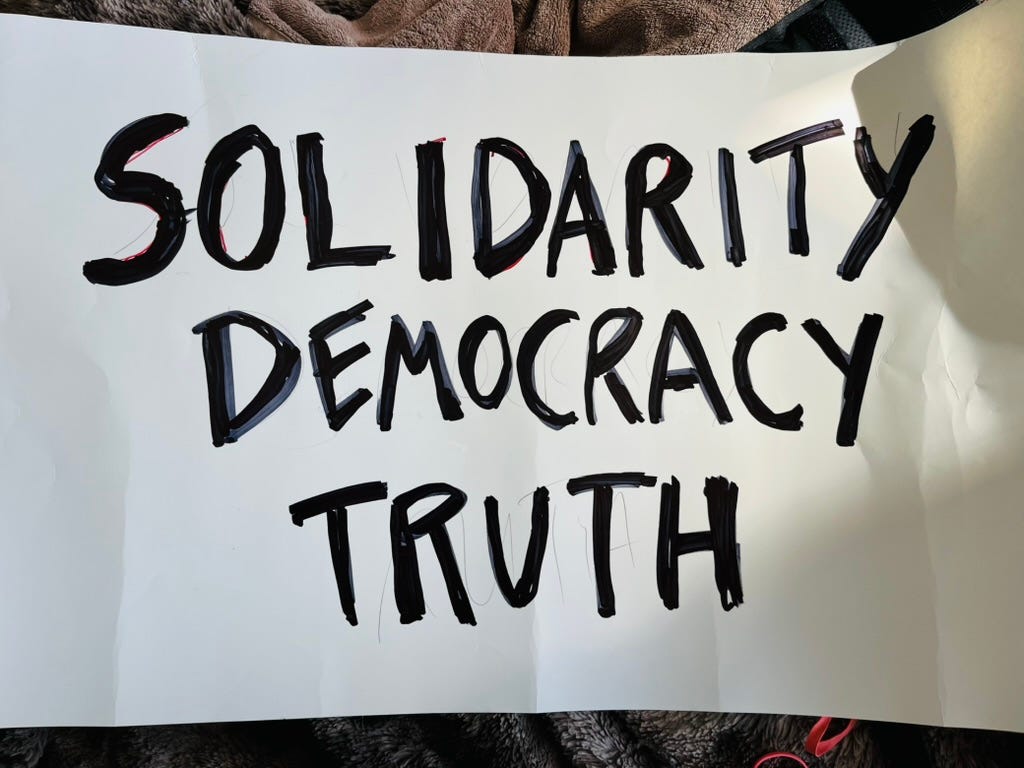 SOLIDARITY
DEMOCRACY
TRUTH